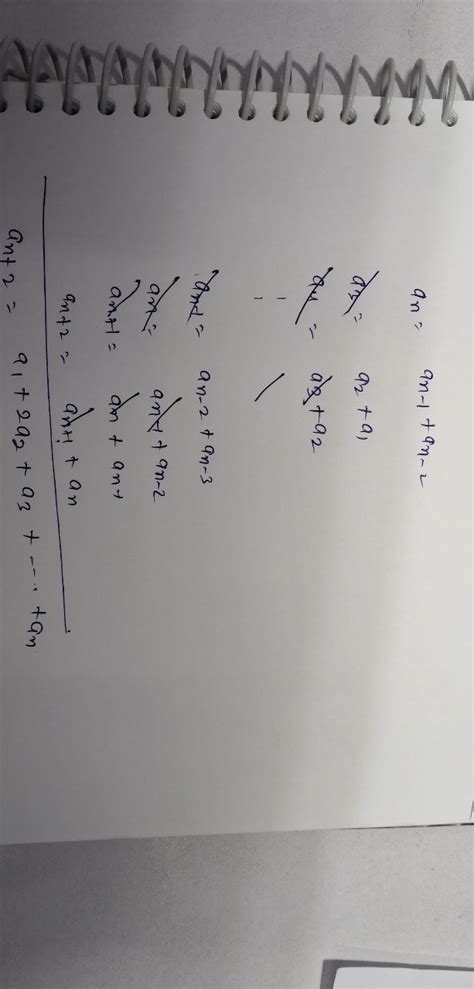 an = an-1 + an-2
a3 = a2 + a1
a4 = a3 + a2
an-1 = an-2 + an-3
an = an-1 + an-2
an+1 = an + an-1
an+2 = an+1 + an
an+2 = a1 + 2a2 + a3 + ---- + an